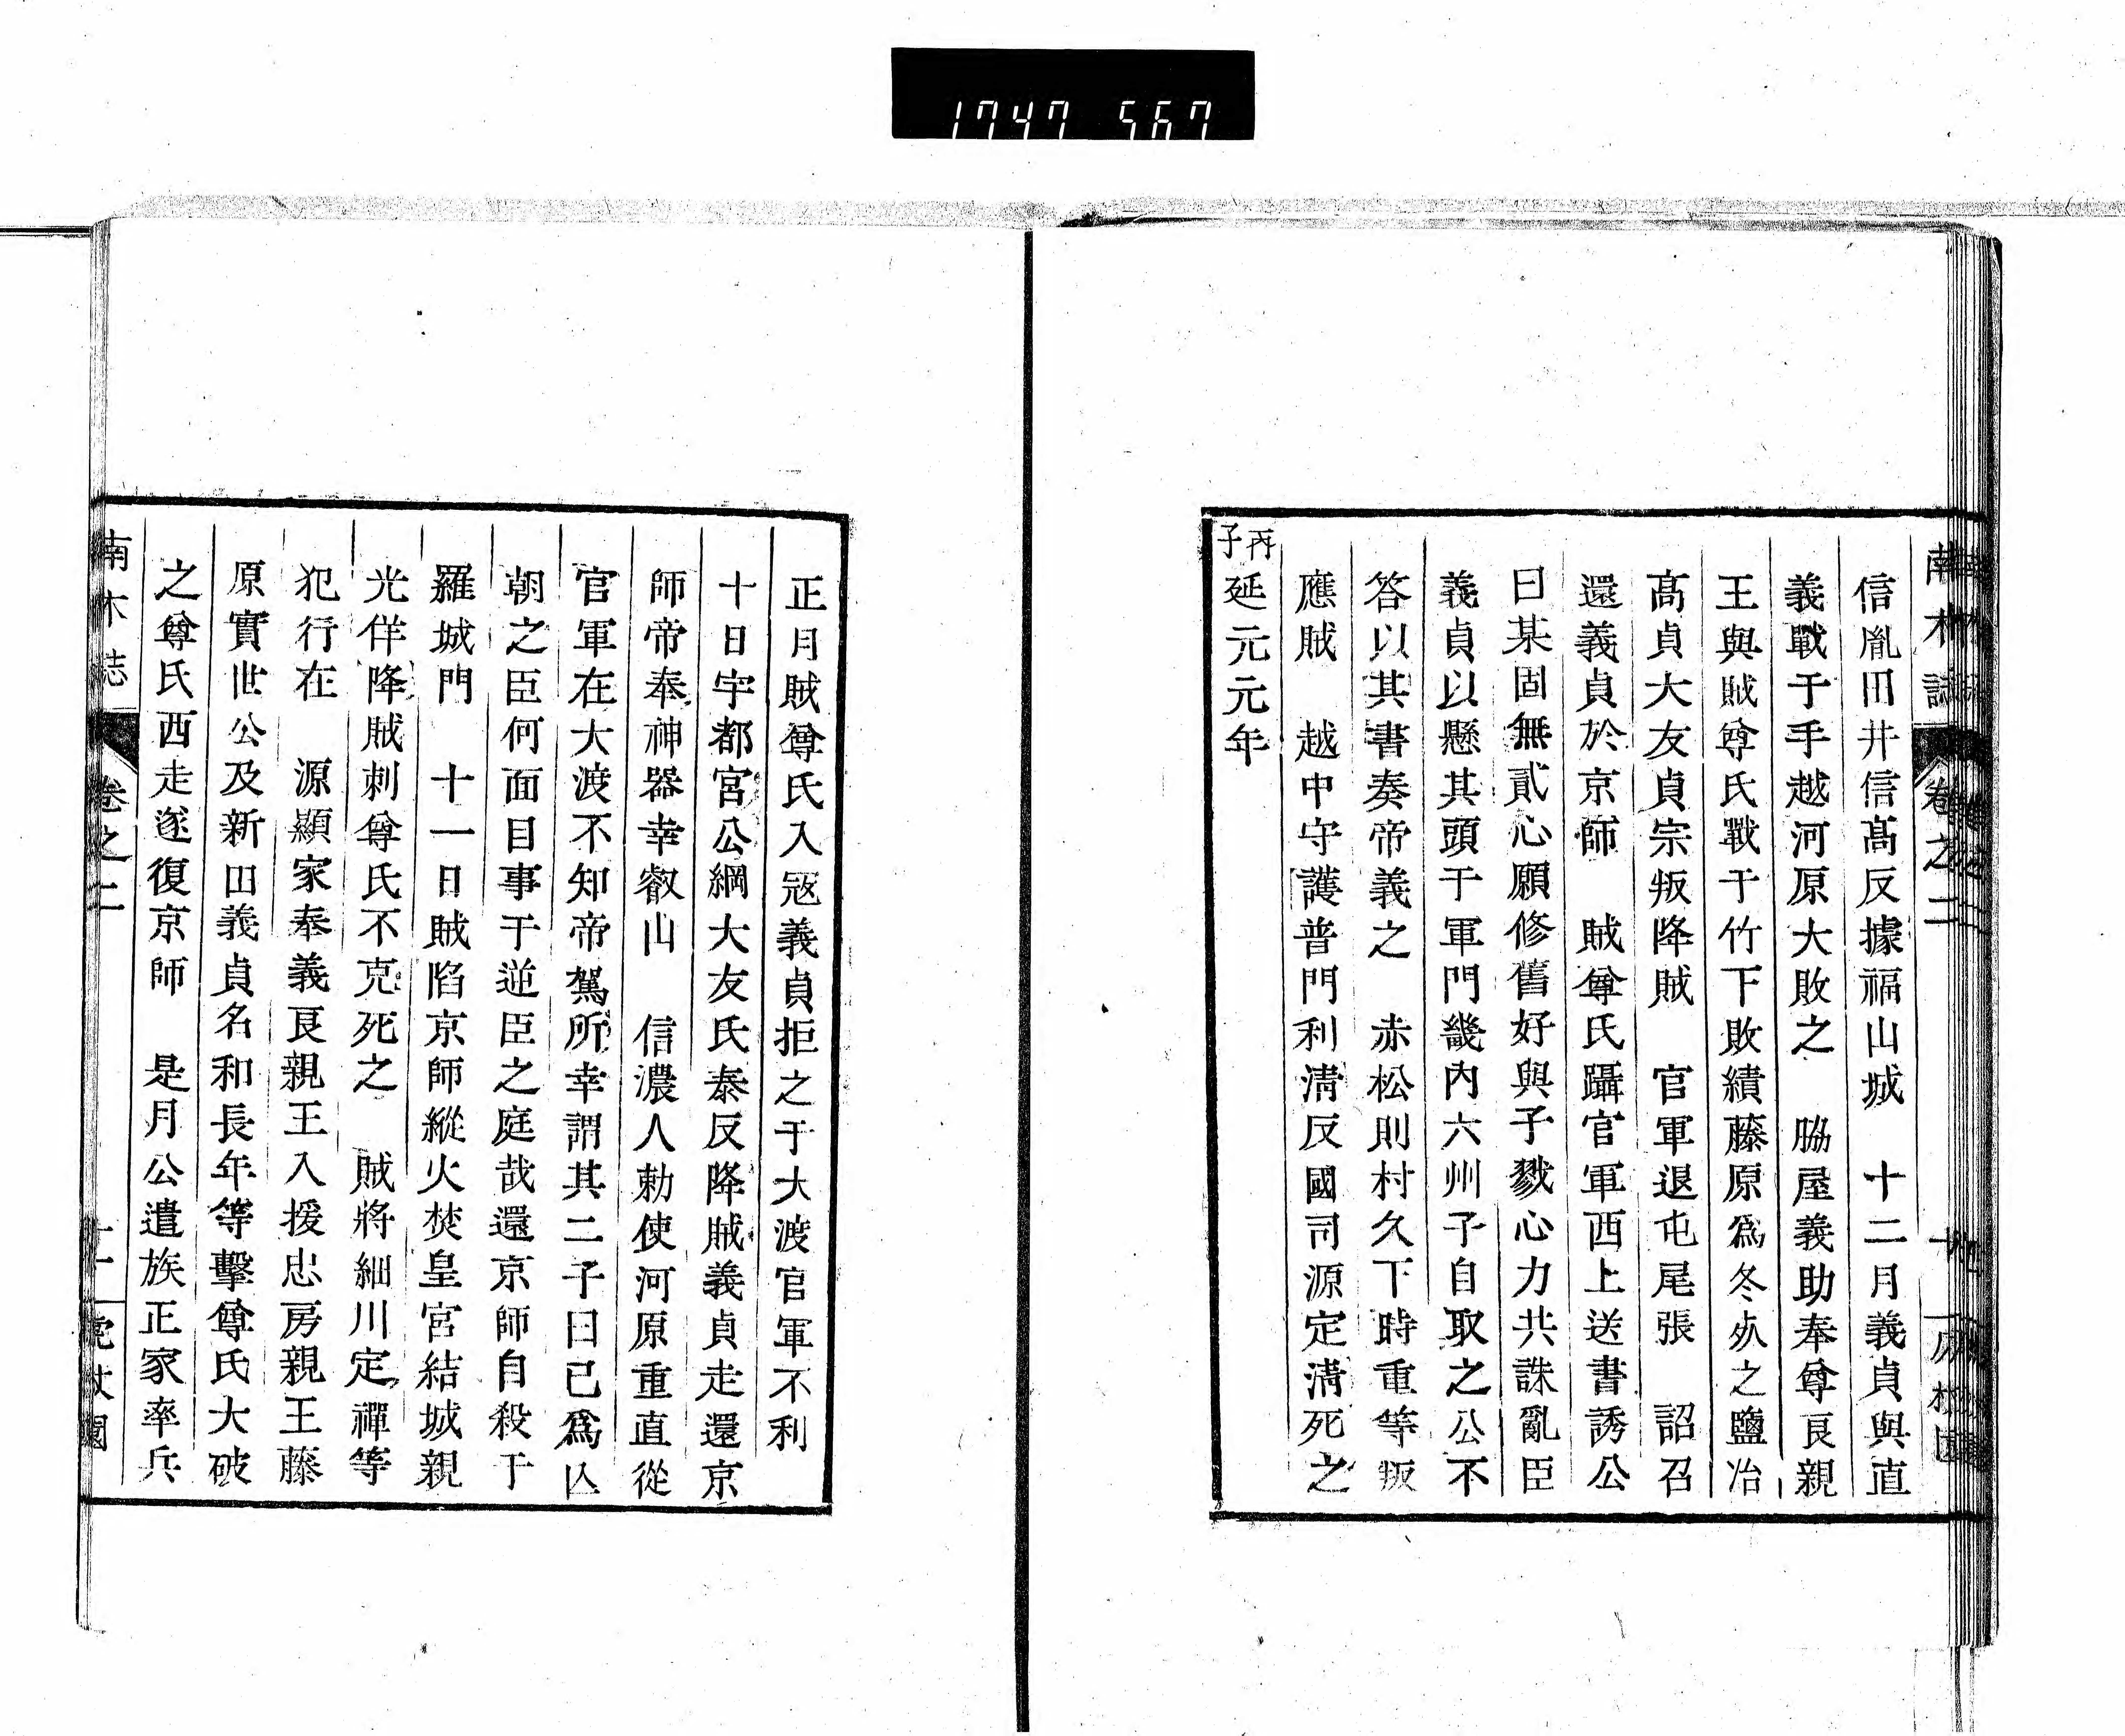 1747 567
南木誌
卷之二
信胤田井信髙反據福山城　十二月義貞與直
義戰于手越河原大敗之　脇屋義助奉尊良親
王與賊尊氏戰于竹下敗績藤原爲冬㱕之鹽冶
髙貞大友貞宗叛降賊　官軍退屯尾張　詔召
還義貞於京師　賊尊氏躡官軍西上送書誘公
曰某固無貳心願修舊好與子戮心力共誅亂臣
義貞以懸其頭于軍門畿內六州子自取之公不
答以其書奏帝義之　赤松則村久下時重等叛
應賊　越中守護普門利淸反國司源定淸死之
丙子延元元年
正月賊尊氏入寇義貞拒之于大渡官軍不利
十日宇都宮公綱大友氏泰反降賊義貞走還京
師帝奉神器幸叡山　信濃人勅使河原重直從
官軍在大渡不知帝駕所幸謂其二子曰已爲亾
朝之臣何面目事于逆臣之庭哉還京師自殺于
羅城門　十一日賊陷京師縱火焚皇宮結城親
光佯降賊刺尊氏不克死之　賊將細川定禪等
犯行在　源顯家奉義良親王入援忠房親王藤
原實世公及新田義貞名和長年等擊尊氏大破
之尊氏西走遂復京師　是月公遣族正家率兵
南木誌
卷之二
十一